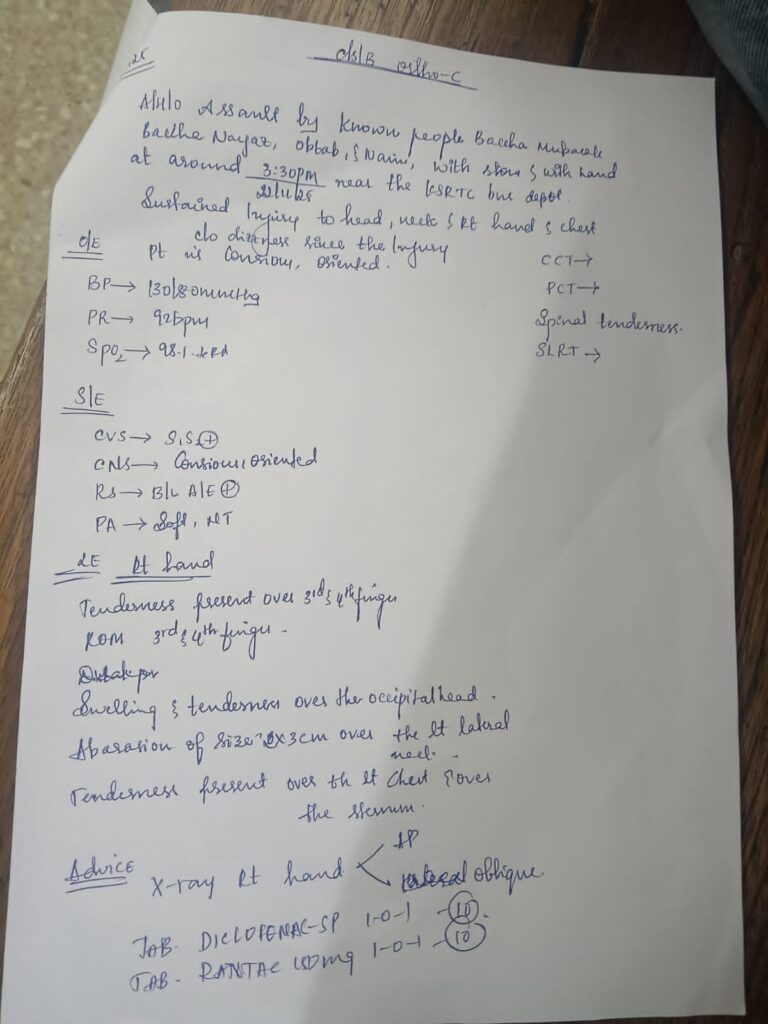 .25
c/s/B ortho-C
A/H/o Assault by known people Baccha Mubarak
Baccha Nayaz, & Naim, with stone & with hand
at around 3:30pm near the KSRTC bus depot.
2/11/25
Sustained Injury to head, neck & Rt hand & chest
c/o dizziness since the Injury
O/E
Pt is Consious, oriented.
CCT→
BP→ 130/80mmHg
PCT→
PR→ 92bpm
Spinal tenderness.
SpO2→ 98% RA
SLRT →
S/E
CVS→ S1S2 (+)
CNS→ Consious, oriented
RS→ B/L A/E (+)
PA→ Soft, NT
LE Rt hand
Tenderness present over 3rd & 4th finger
ROM 3rd & 4th finger.
Swelling & tenderness over the occipital head.
Abarasion of size 2x3cm over the lt lateral
neck.
Tenderness present over th lt Chest & over
the sternum.
Advice
X-ray Rt hand < AP
oblique.
TAB. DICLOFENAC-SP 1-0-1 - (10).
TAB. RANTAC 150mg 1-0-1 - (10)